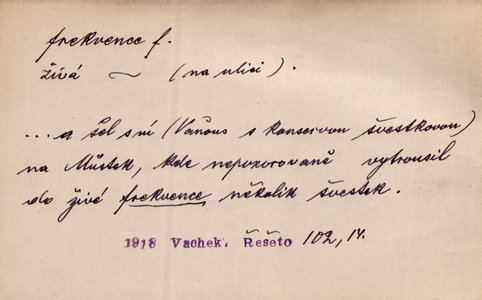 frekvence f.
živá ~ (na ulici).
...a šel s ní (Vaňous s konservou švestkovou)
na Můstek, kde nepozorovaně vytrousil
do živé frekvence několik švestek.
1918 Vachek. Řešeto 102,14.